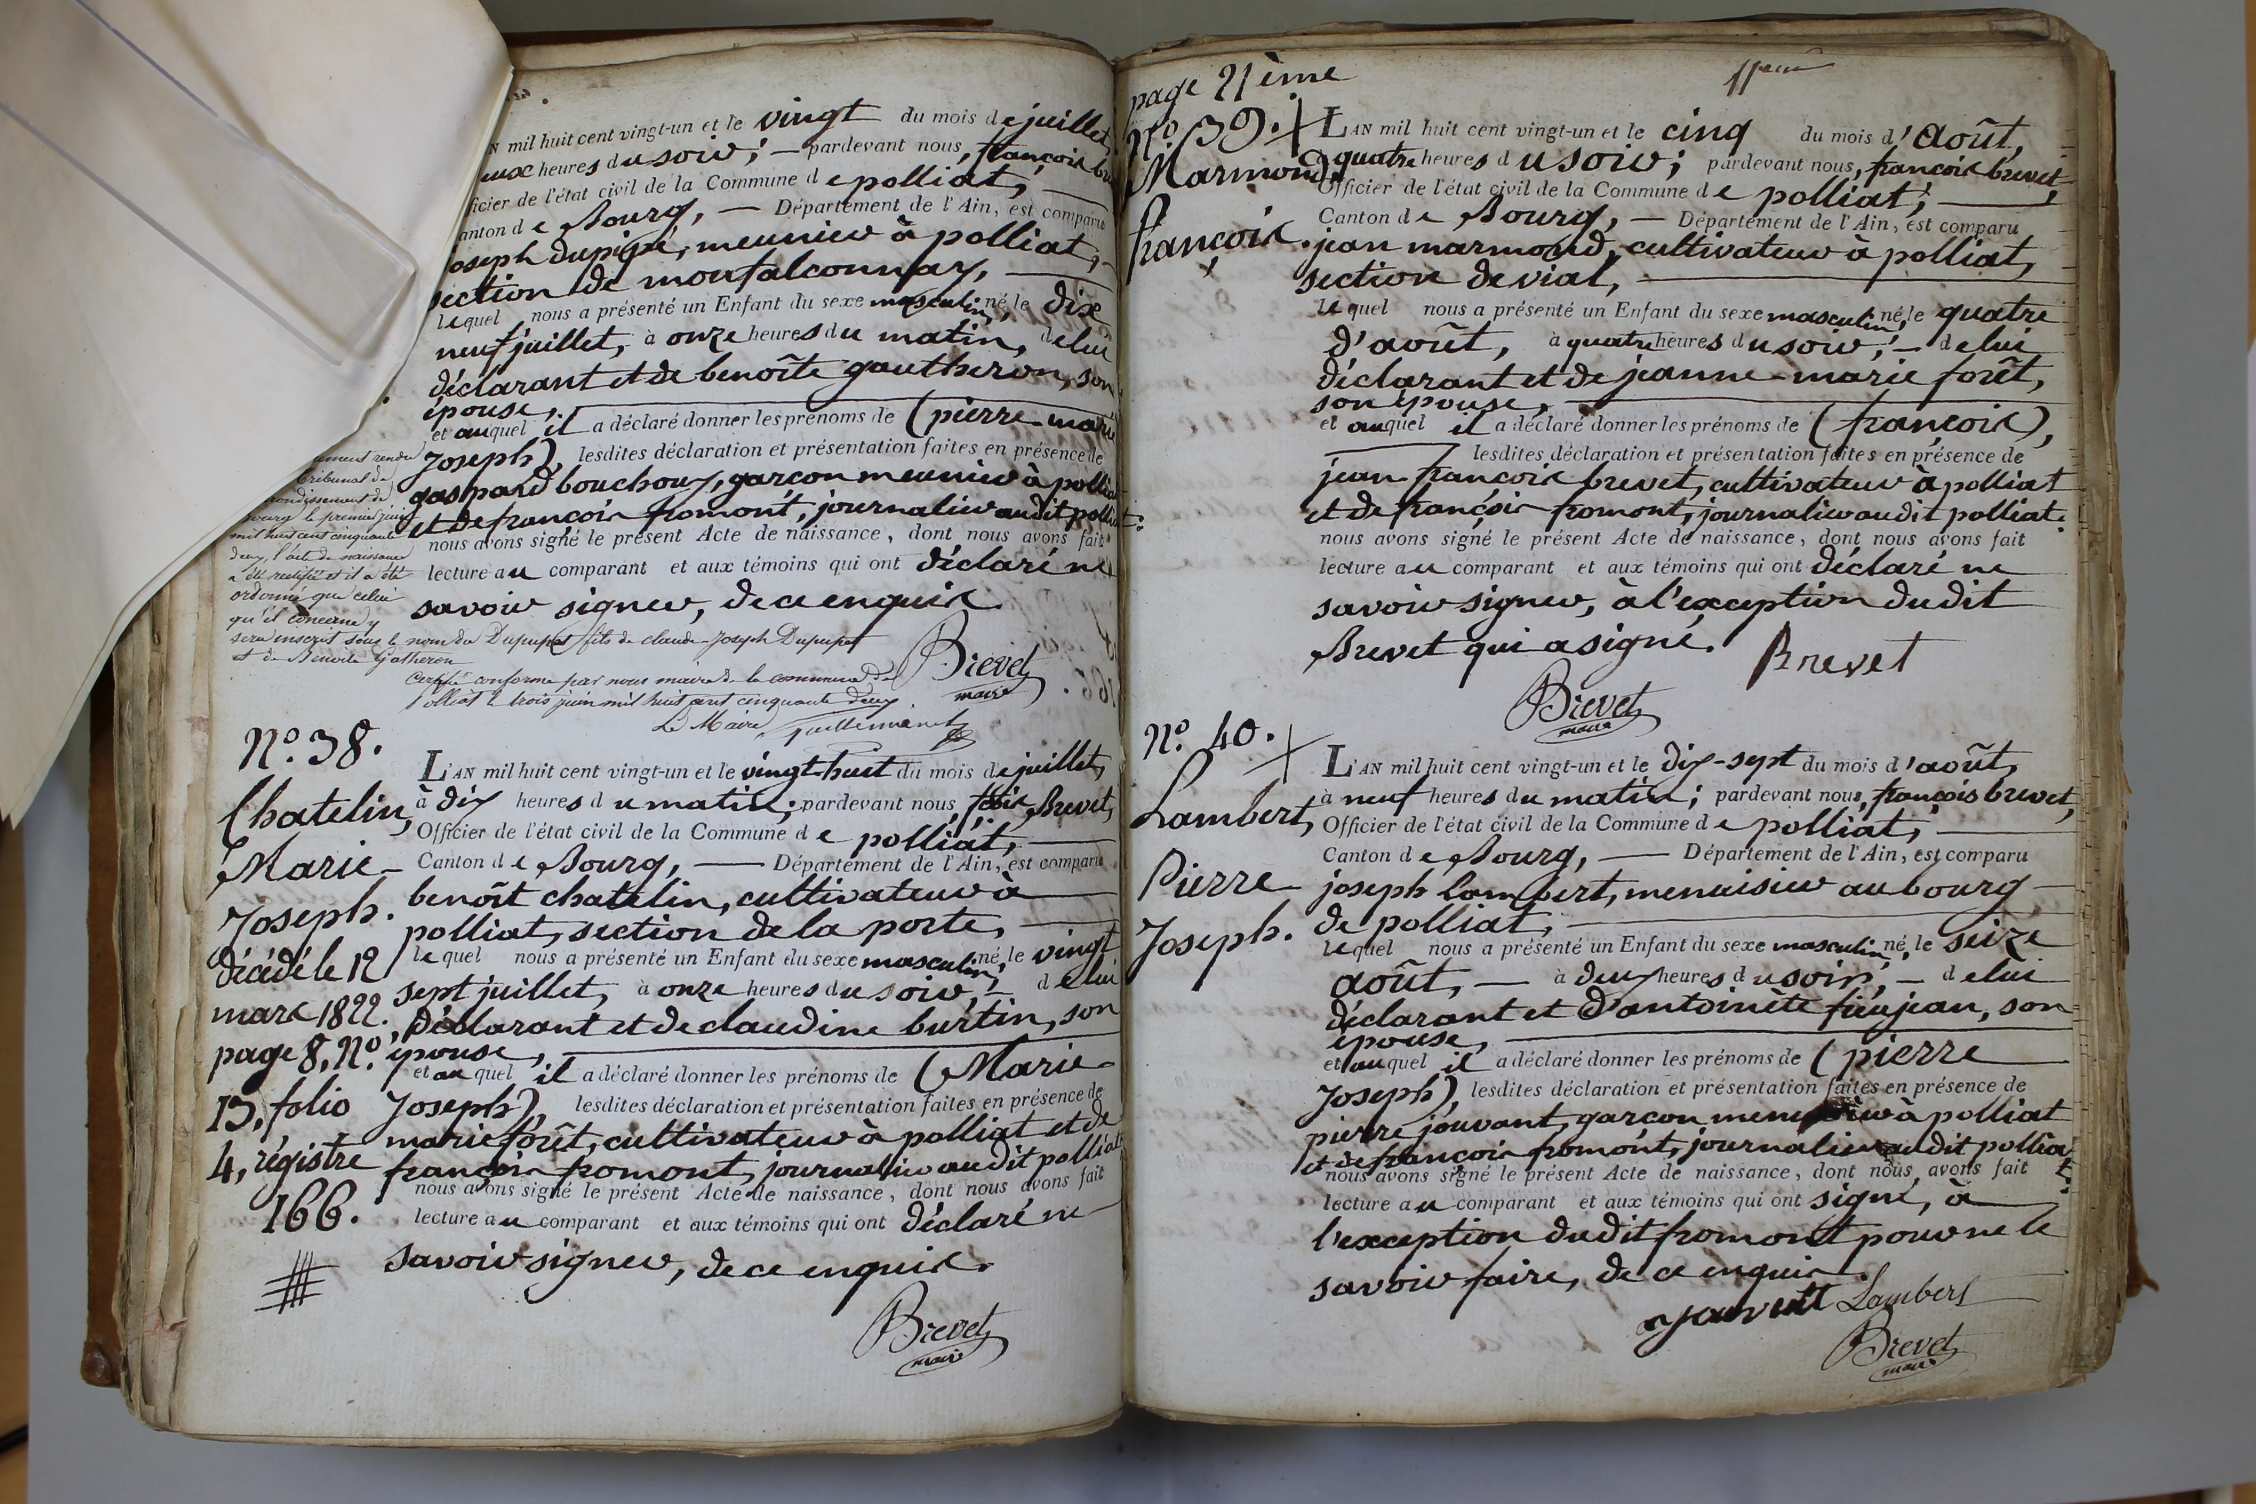 N mil huit cent vingt-un et le vingt du mois de juillet,
eux heures du soir; — pardevant nous, françois
ficier de l'état civil de la Commune de polliat,
anton de Bourg, — Département de l'Ain, est comparu
oseph dupipé, meunier à polliat,
section de monfalconnay,
lequel nous a présenté un Enfant du sexe masculin, né, le dix
neuf juillet, à onze heures du matin, de lui
déclarant et de benoîte gautheron, son
épouse,
et auquel il a déclaré donner les prénoms de (pierre-marie
Joseph), lesdites déclaration et présentation faites en présence de
gaspard bouchoux, garçon meunier à polliat
et de françois fromont, journalier audit polliat:
nous avons signé le présent Acte de naissance, dont nous avons fait
lecture au comparant et aux témoins qui ont déclaré ne
savoir signer, de ce enquis.
Brevet
maire
rendu
tribunal de
ondissement de
le premier juin
mil huit cent cinquante
deux, l'acte de naissance
a été rectifié et il a été
ordonné que celui
qu'il concerne y
sera inscrit sous le nom de Dupupet fils de claude-Joseph Dupupet
et de Benoite Gatheron
Certifié conforme par nous maire de la commune de
Polliat le trois juin mil huit cent cinquante deux
Le Maire,
N.º 38.
Chatelin,
Marie-
Joseph.
décédé le 12
mars 1822.
page 8, N.º
15, folio
4, régistre
166.
L'AN mil huit cent vingt-un et le vingt-huit du mois de juillet,
à dix heures du matin; pardevant nous, fçois Brevet,
Officier de l'état civil de la Commune de polliat,
Canton de Bourg, — Département de l'Ain, est comparu
benoît chatelin, cultivateur à
polliat, section de la porte,
lequel nous a présenté un Enfant du sexe masculin, né, le vingt
sept juillet, à onze heures du soir, — de lui
déclarant et de claudine burtin, son
épouse,
et auquel il a déclaré donner les prénoms de (Marie-
Joseph), lesdites déclaration et présentation faites en présence de
marie forêt, cultivateur à polliat et de
françois fromont, journalier audit polliat
nous avons signé le présent Acte de naissance, dont nous avons fait
lecture au comparant et aux témoins qui ont déclaré ne
savoir signer, de ce enquis.
Brevet
maire
page 21ème
11eme
N.º 39.
Marmond,
françois.
L'AN mil huit cent vingt-un et le cinq du mois d'août,
quatre heures du soir; pardevant nous, françois brevet,
Officier de l'état civil de la Commune de polliat,
Canton de Bourg, — Département de l'Ain, est comparu
jean marmond, cultivateur à polliat,
section de vial,
lequel nous a présenté un Enfant du sexe masculin, né, le quatre
d'août, à quatre heures du soir, — de lui
déclarant et de jeanne-marie forêt,
son épouse,
et auquel il a déclaré donner les prénoms de (françois),
lesdites déclaration et présentation faites en présence de
jean-françois brevet, cultivateur à polliat
et de françois fromont, journalier audit polliat:
nous avons signé le présent Acte de naissance, dont nous avons fait
lecture au comparant et aux témoins qui ont déclaré ne
savoir signer, à l'exception dudit
Brevet qui a signé. Brevet
Brevet
maire
N.º 40.
Lambert,
Pierre
Joseph.
L'AN mil huit cent vingt-un et le dix-sept du mois d'août,
à neuf heures du matin; pardevant nous, françois brevet,
Officier de l'état civil de la Commune de polliat,
Canton de Bourg, — Département de l'Ain, est comparu
joseph lambert, menuisier au bourg
de polliat,
lequel nous a présenté un Enfant du sexe masculin, né, le seize
août, — à deux heures du soir, — de lui
déclarant et d'antoinète fiéujean, son
épouse,
et auquel il a déclaré donner les prénoms de (pierre
Joseph), lesdites déclaration et présentation faites en présence de
pierre jouvant, garçon menuisier à polliat
et de françois fromont, journalier audit polliat:
nous avons signé le présent Acte de naissance, dont nous avons fait
lecture au comparant et aux témoins qui ont signé, à
l'exception dudit fromont pour ne le
savoir faire, de ce enquis.
Lambert
Brevet
maire